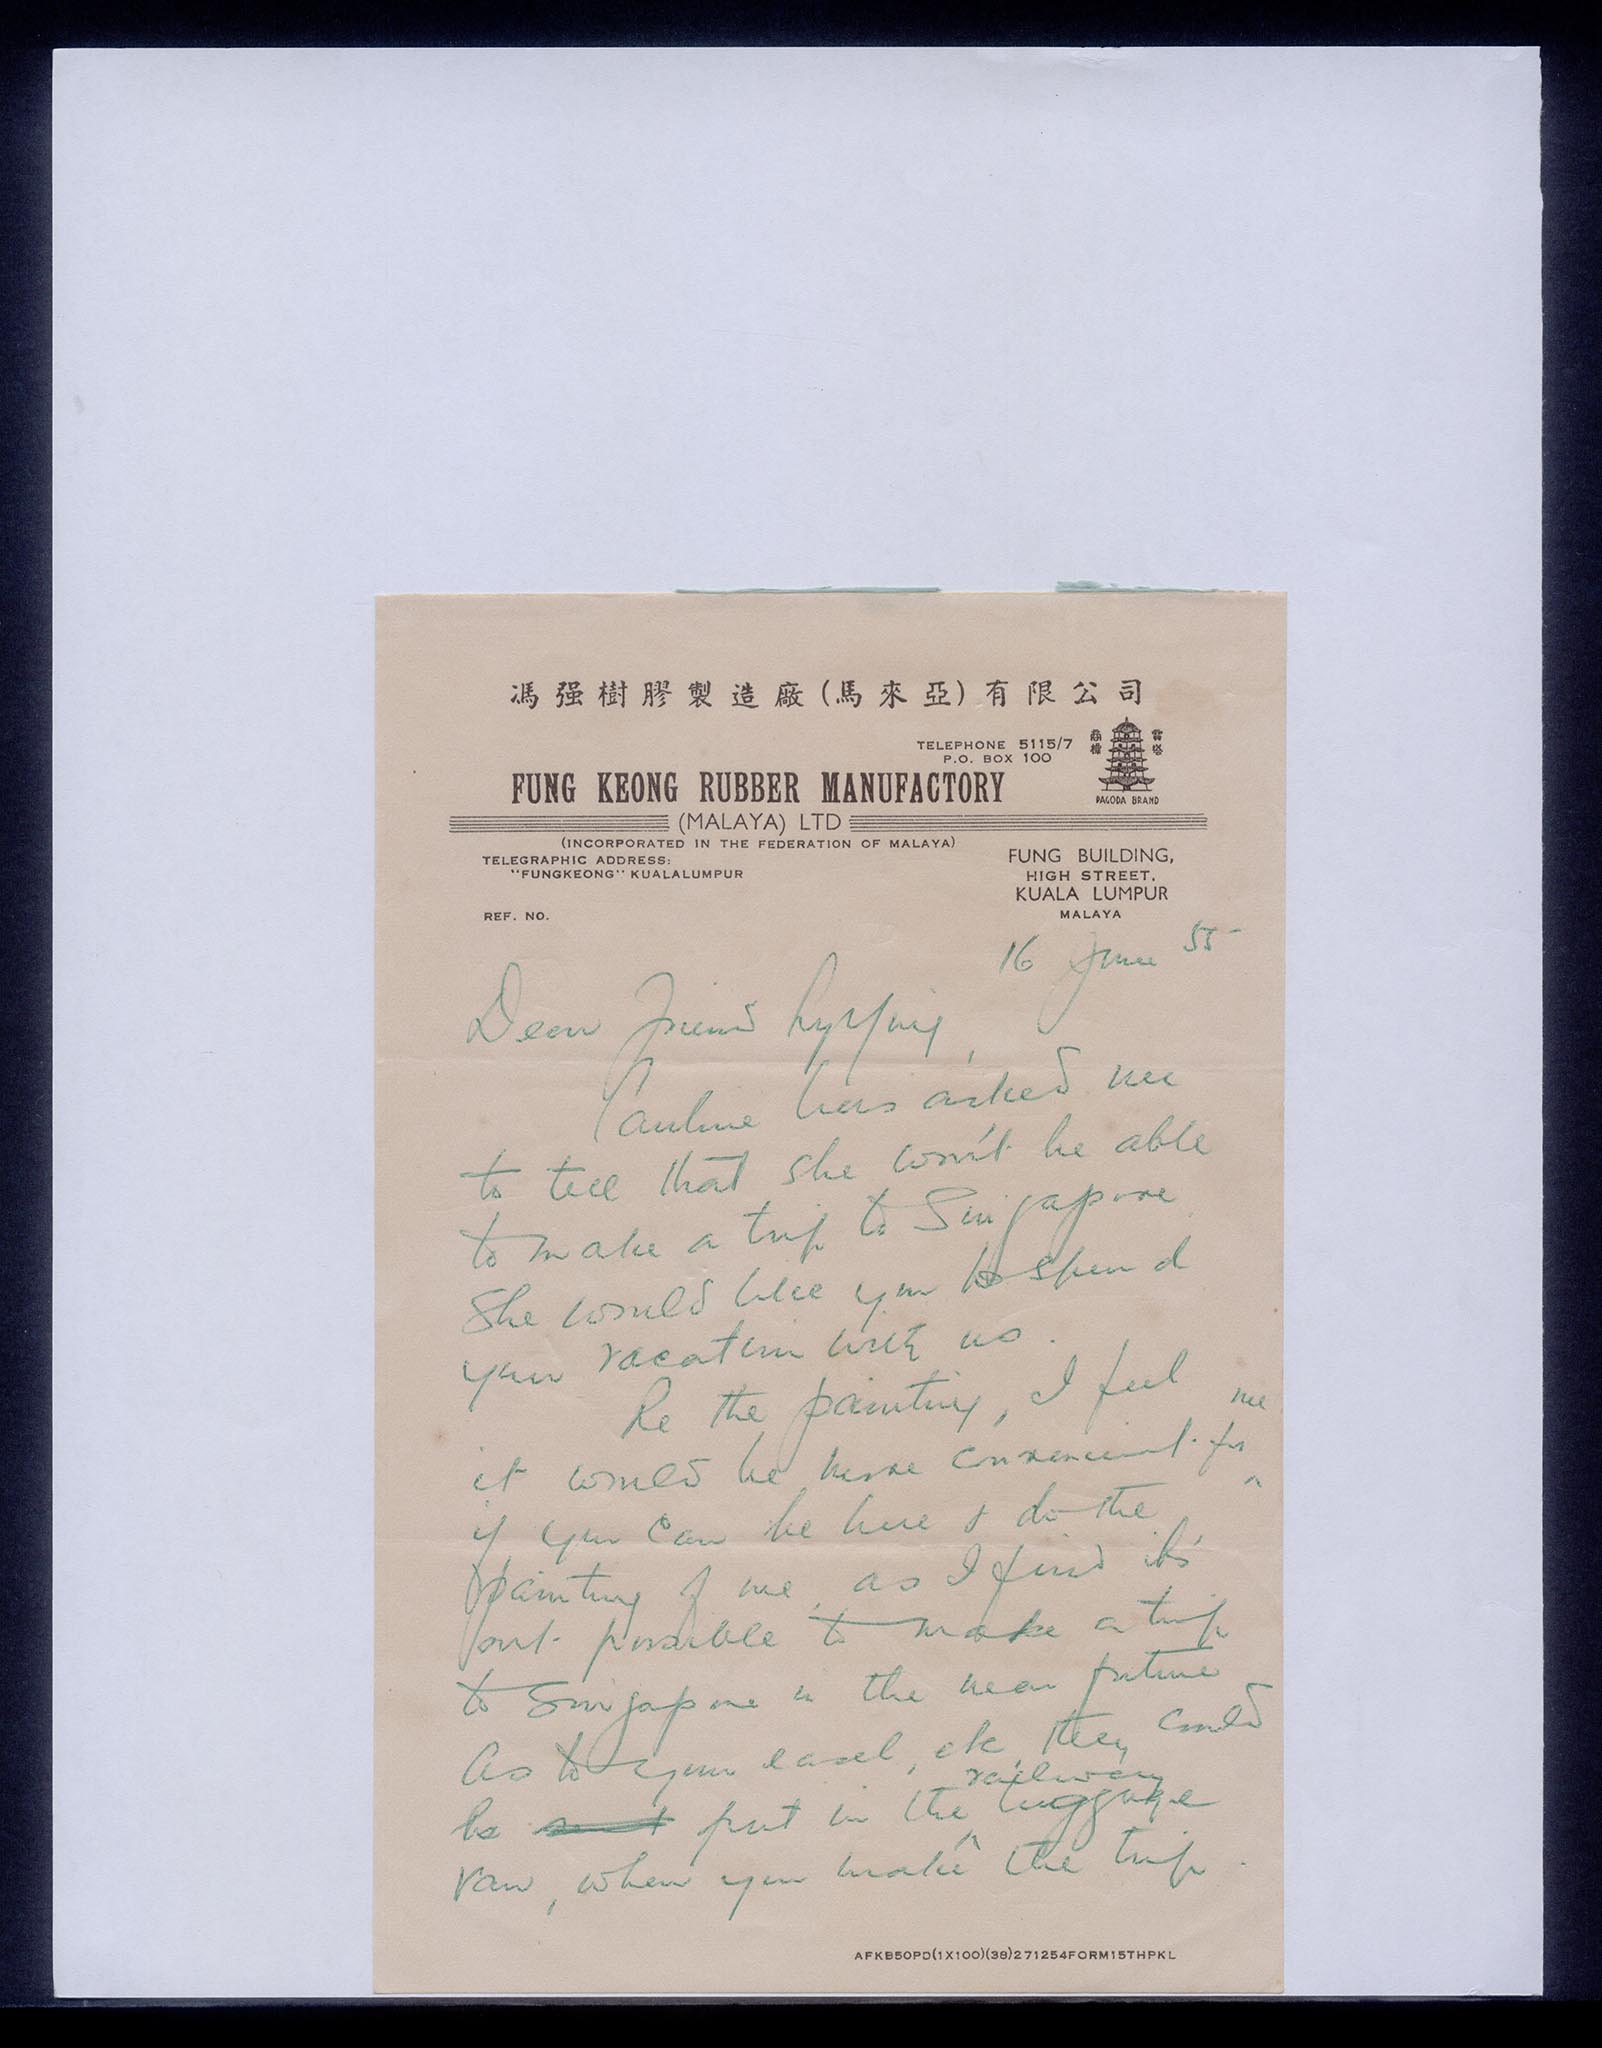 馮强樹膠製造廠(馬來亞)有限公司
TELEPHONE 5115/7
P.O. BOX 100
商標 寶塔
PAGODA BRAND
FUNG KEONG RUBBER MANUFACTORY
(MALAYA) LTD
(INCORPORATED IN THE FEDERATION OF MALAYA)
TELEGRAPHIC ADDRESS:
"FUNGKEONG" KUALALUMPUR
FUNG BUILDING,
HIGH STREET,
KUALA LUMPUR
MALAYA
REF. NO.
16 June 55
Dear Friend
Pauline has asked me
to tell that she won't be able
to make a trip to Singapore.
She would like you to spend
your vacation with us.
Re the painting, I feel
it would be more convenient for me
if you can be here & do the
painting of me, as I find it's
not possible to make a trip
to Singapore in the near future
As to your easel, etc, they could
be put in the railway luggage
van, when you make the trip.
AFKB50PD(1X100)(38)271254FORM15THPKL